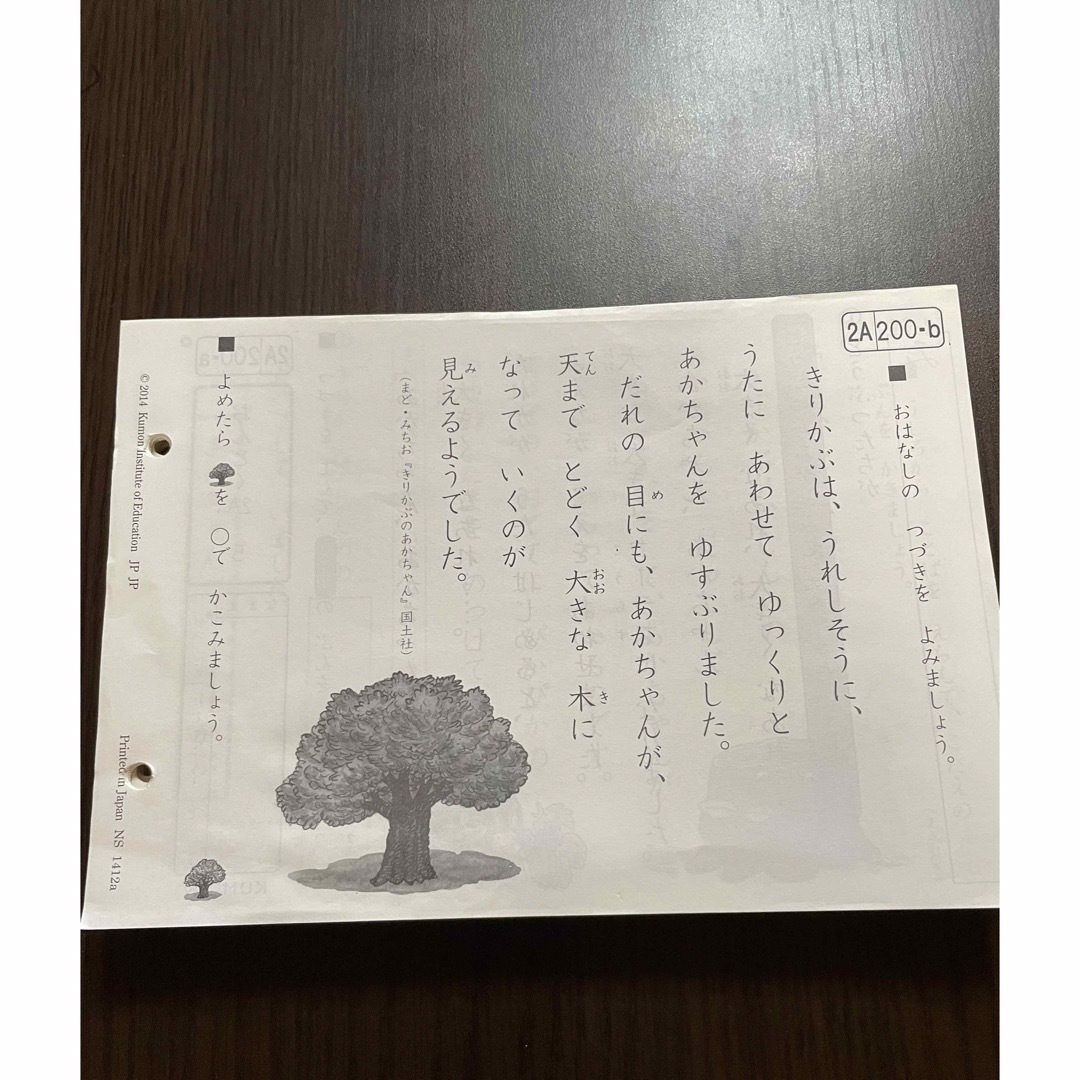 2A 200-b
■ おはなしの つづきを よみましょう。
きりかぶは、うれしそうに、
うたに あわせて ゆっくりと
あかちゃんを ゆすぶりました。
だれの 目にも、あかちゃんが、
め
天まで とどく 大きな 木に
てん おお き
なって いくのが
見えるようでした。
み
(まど・みちお『きりかぶのあかちゃん』国土社)
■ よめたら を ○で かこみましょう。
© 2014 Kumon Institute of Education JP JP
Printed in Japan NS 1412a